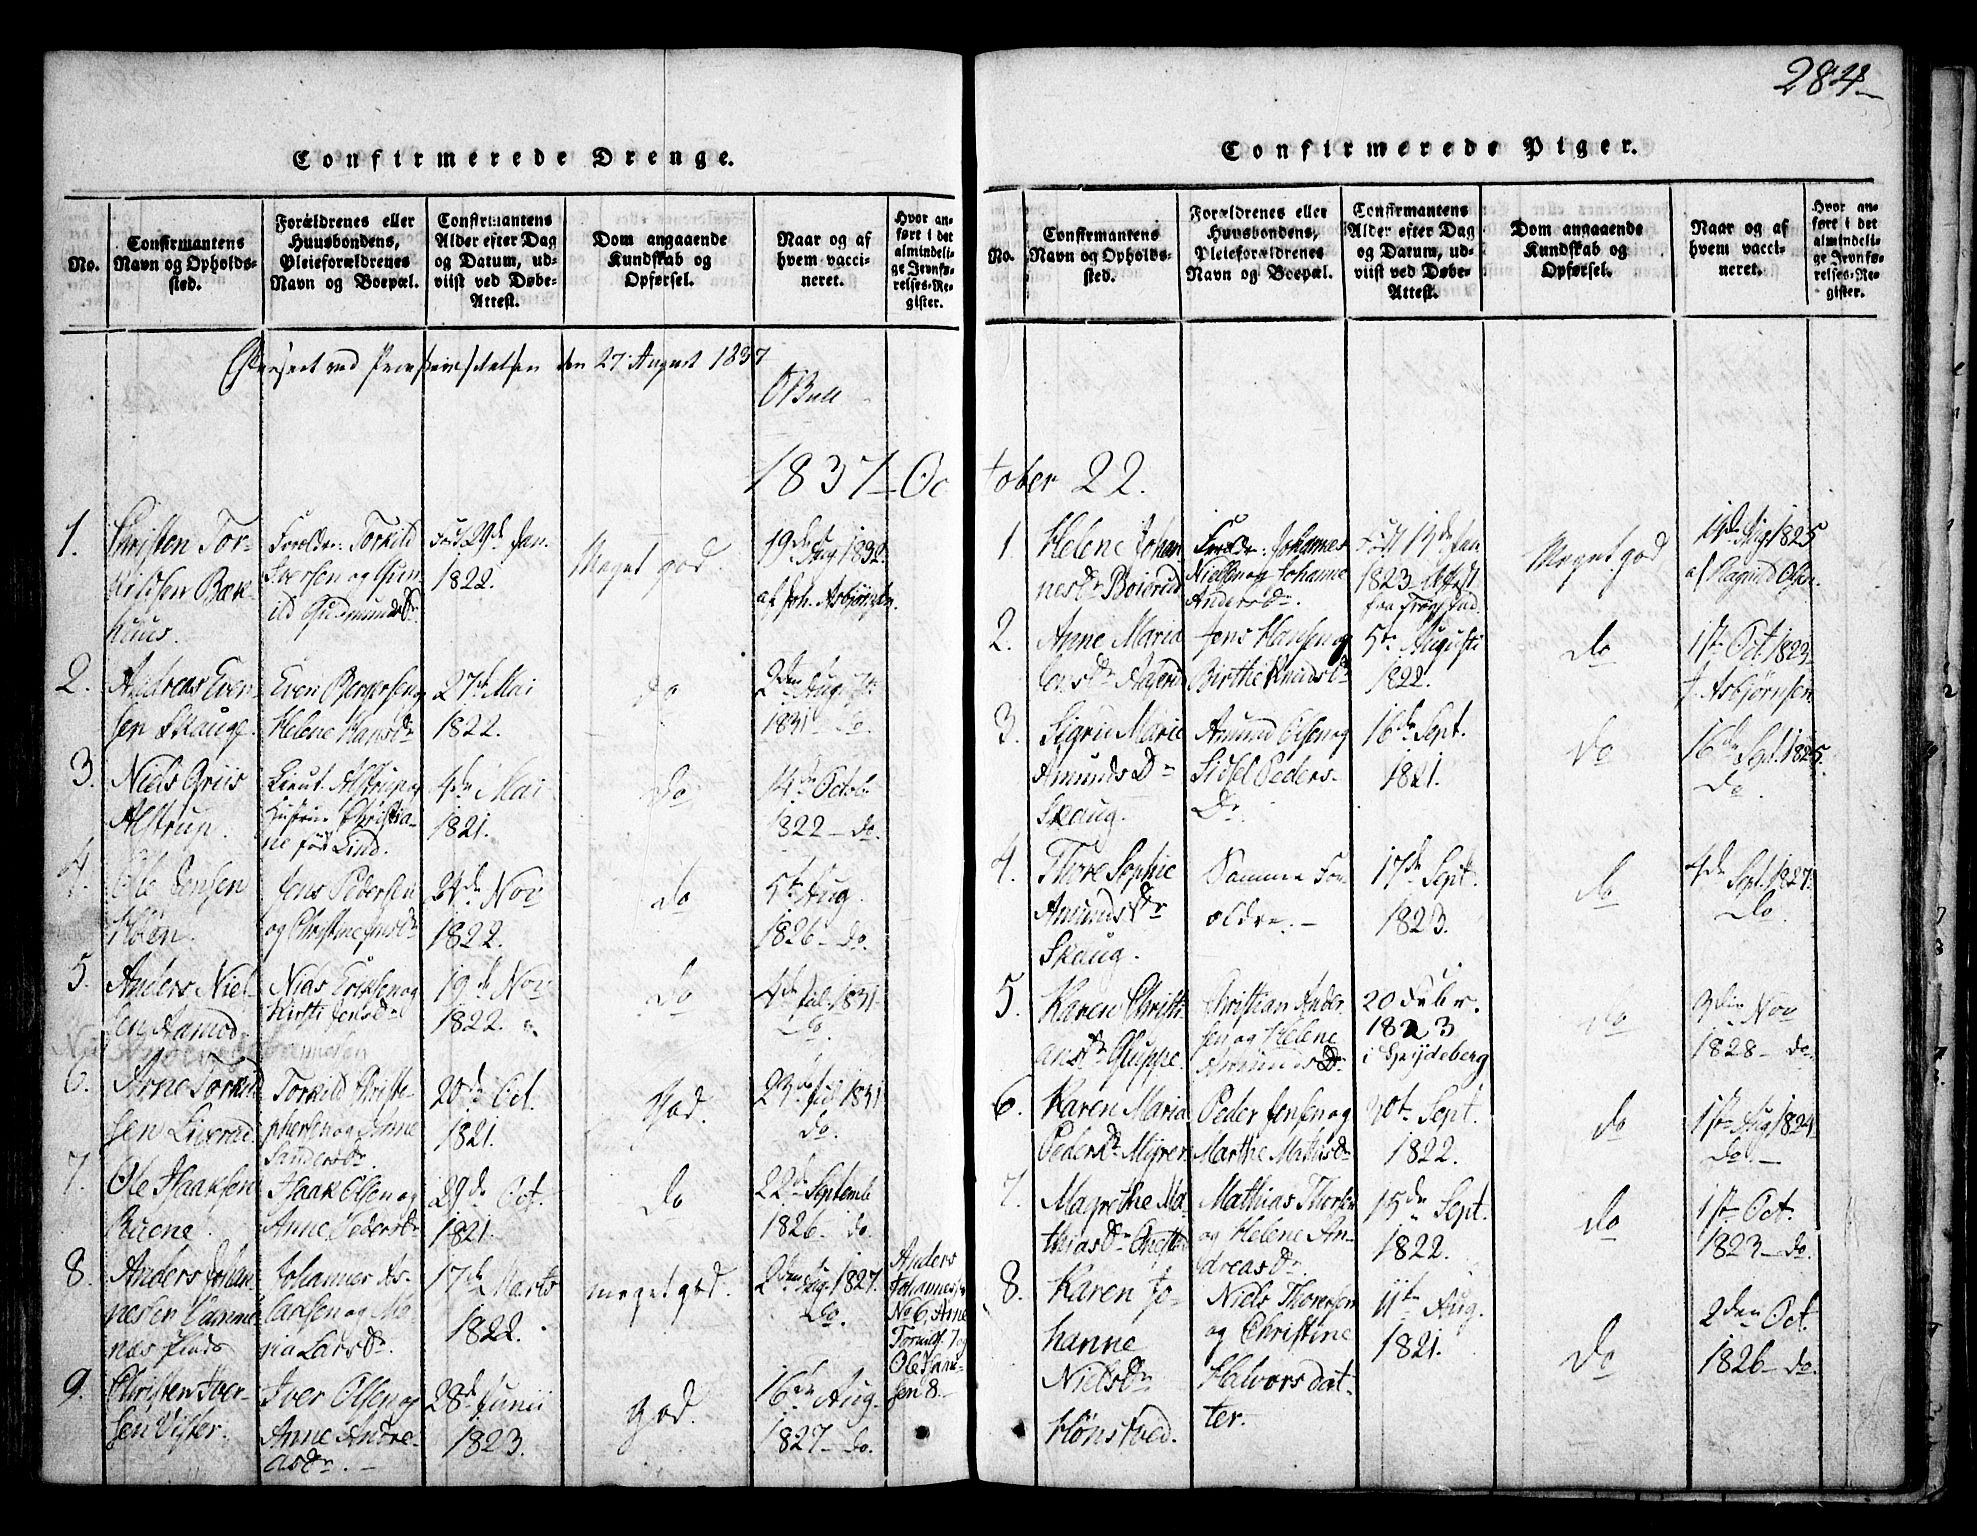 284
Confirmerede Drenge.
No.
Confirmantens
Navn og Opholds-
sted.
Forældrenes eller
Huusbondens,
Pleieforældrenes
Navn og Boepæl.
Confirmantens
Alder efter Dag
og Datum, ud-
viist ved Døbe-
Attest.
Dom angaaende
Kundskab og
Opførsel.
Naar og af
hvem vacci-
neret.
Hvor an-
ført i det
almindeli-
ge Jevnfø-
relses-Re-
gister.
den 27 August 1837
OBull
1837 Oc
1.
Christen Tor-
kildsen Bak-
huus.
Forældre: Torkild
Iversen og Gun-
ild Gudmundsdr
Født 29de Jan.
1822.
Meget god.
19de Aug 1832.
af Joh. Asbjørnsen.
2.
Andreas Even-
sen Skaug.
Even Børgersen og
Helene Hansdr
27de Mai
1822.
do
2den Aug.
1831 do.
3.
Niels Griis
Alstrup.
Lieut. Alstrup og
Hustrue Christia-
ne født Lind.
4de Mai
1821.
do
14de Octob.
1822 – do.
4.
Ole Jensen
Moen.
Jens Pedersen
og Christine Jensdr
24de Nov
1822.
do
5te Aug.
1826 – do.
5.
Anders Niel-
sen Aamod
Nias Eriksen og
Kirsti Jensdr
19de Nov
1822.
do
4de Jul. 1831
do
6.
Arne Torkild
sen Liverud.
Torkild Christo-
phersen og Anne
Sandersdr.
20de Oct.
1821.
God.
23de Jul 1831
do.
7.
Ole Haaksen
Ruene.
Haak Olsen og
Anne Pedersdr
29de Oct.
1821.
do
22de Septemb
1826. do.
8.
Anders Johan-
nesen
Johannes Is-
aksen og Ma-
ria Larsdr.
17de Marts
1822.
meget god.
2den Aug. 1827.
do.
Anders
Johannesen
No 6, Arne
Torkilds. 7 og
Ole Haak-
sen 8.
9.
Christen Iver-
sen Vister.
Iver Olsen og
Anne Andre-
asdr.
28de Junii
1823.
God.
16de Aug.
1827 – do.
Confirmerede Piger.
No.
Confirmantens
Navn og Opholds-
sted.
Forældrenes eller
Huusbondens,
Pleieforældrenes
Navn og Boepæl.
Confirmantens
Alder efter Dag
og Datum, ud-
viist ved Døbe-
Attest.
Dom angaaende
Kundskab og
Opførsel.
Naar og af
hvem vacci-
neret.
Hvor an-
ført i det
almindeli-
ge Jevnfø-
relses-Re-
gister.
tober 22.
1.
Helene Johan
nesdr Boierud
Foræld: Johannes
Nielsen og Johanne
Andersdr.
Født 13de Jan
1823 Attest
fra Trøgstad.
Meget god
14de Aug 1825
af Ragnild Olsen.
2.
Anne Maria
Jensdr
Jens Hansen og
Birthe Knudsdr
5te Augusti
1822.
do
1ste Oct. 1823
J. Asbjørnsen
3.
Sigrid Marie
Amunds Dr
Skaug.
Amund Olsen og
Sidsel Peders-
Dr.
16de Sept.
1821.
do
16de Sept. 1825.
do.
4.
Thore Sophie
Amundsdr
Skaug.
Samme For-
ældre. –
17de Sept.
1823.
do
4de Sept. 1827.
do.
5.
Karen Christi-
ansdr Gluppe.
Christian Ander
sen og Helene
Amundsdr.
20 Febr.
1823
i Spydeberg
do
3den Nov
1828 – do.
6.
Karen Maria
Pedersdr Myrer
Peder Jensen og
Marthe Mathisdr
30te Sept.
1822.
do
1ste Aug 1824
do. –
7.
Magrethe Ma-
thiasdr
Mathias Thorsen
og Helene An-
dreasdr.
15de Sept.
1822.
do
1ste Oct.
1823 – do.
8.
Karen Jo-
hanne
Nielsdr
Hønstved.
Niels Thoresen
og Christine
Halvorsdat-
ter.
11te Aug.
1821.
do
2den Oct.
1826 – do.